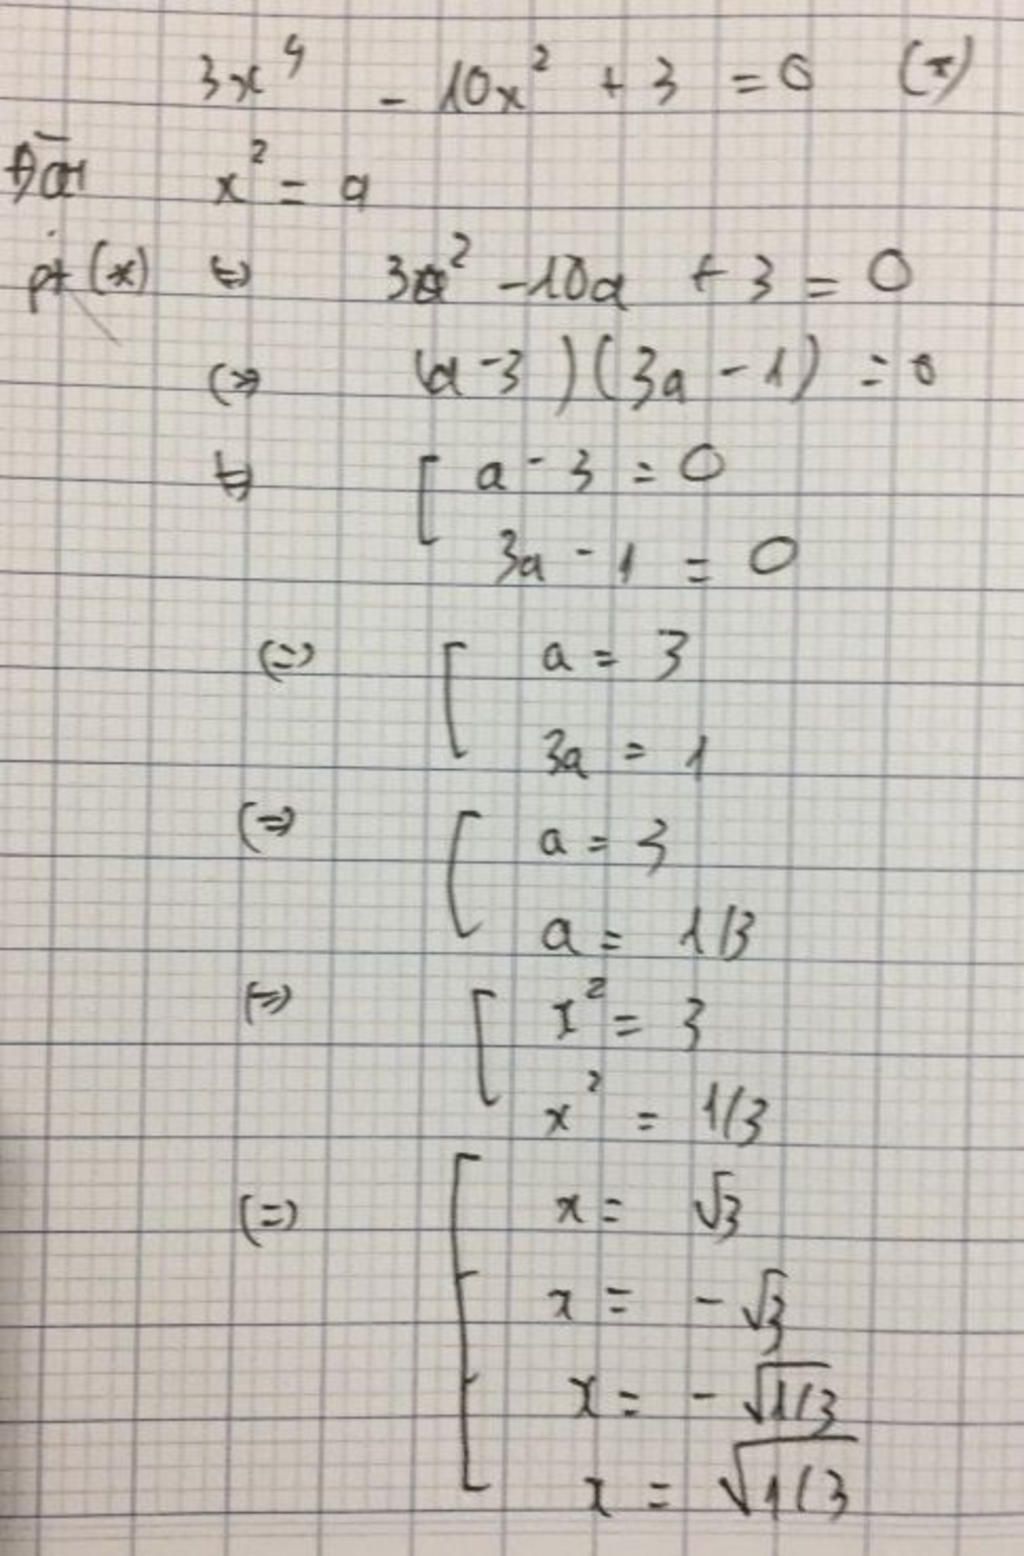 3x⁴ - 10x² + 3 = 0 (*)
Đặt x² = a
pt (*) <=> 3a² - 10a + 3 = 0
<=> (a - 3)(3a - 1) = 0
<=> [ a - 3 = 0
3a - 1 = 0
<=> [ a = 3
3a = 1
<=> [ a = 3
a = 1/3
<=> [ x² = 3
x² = 1/3
<=> [ x = √3
x = -√3
x = -√1/3
x = √1/3